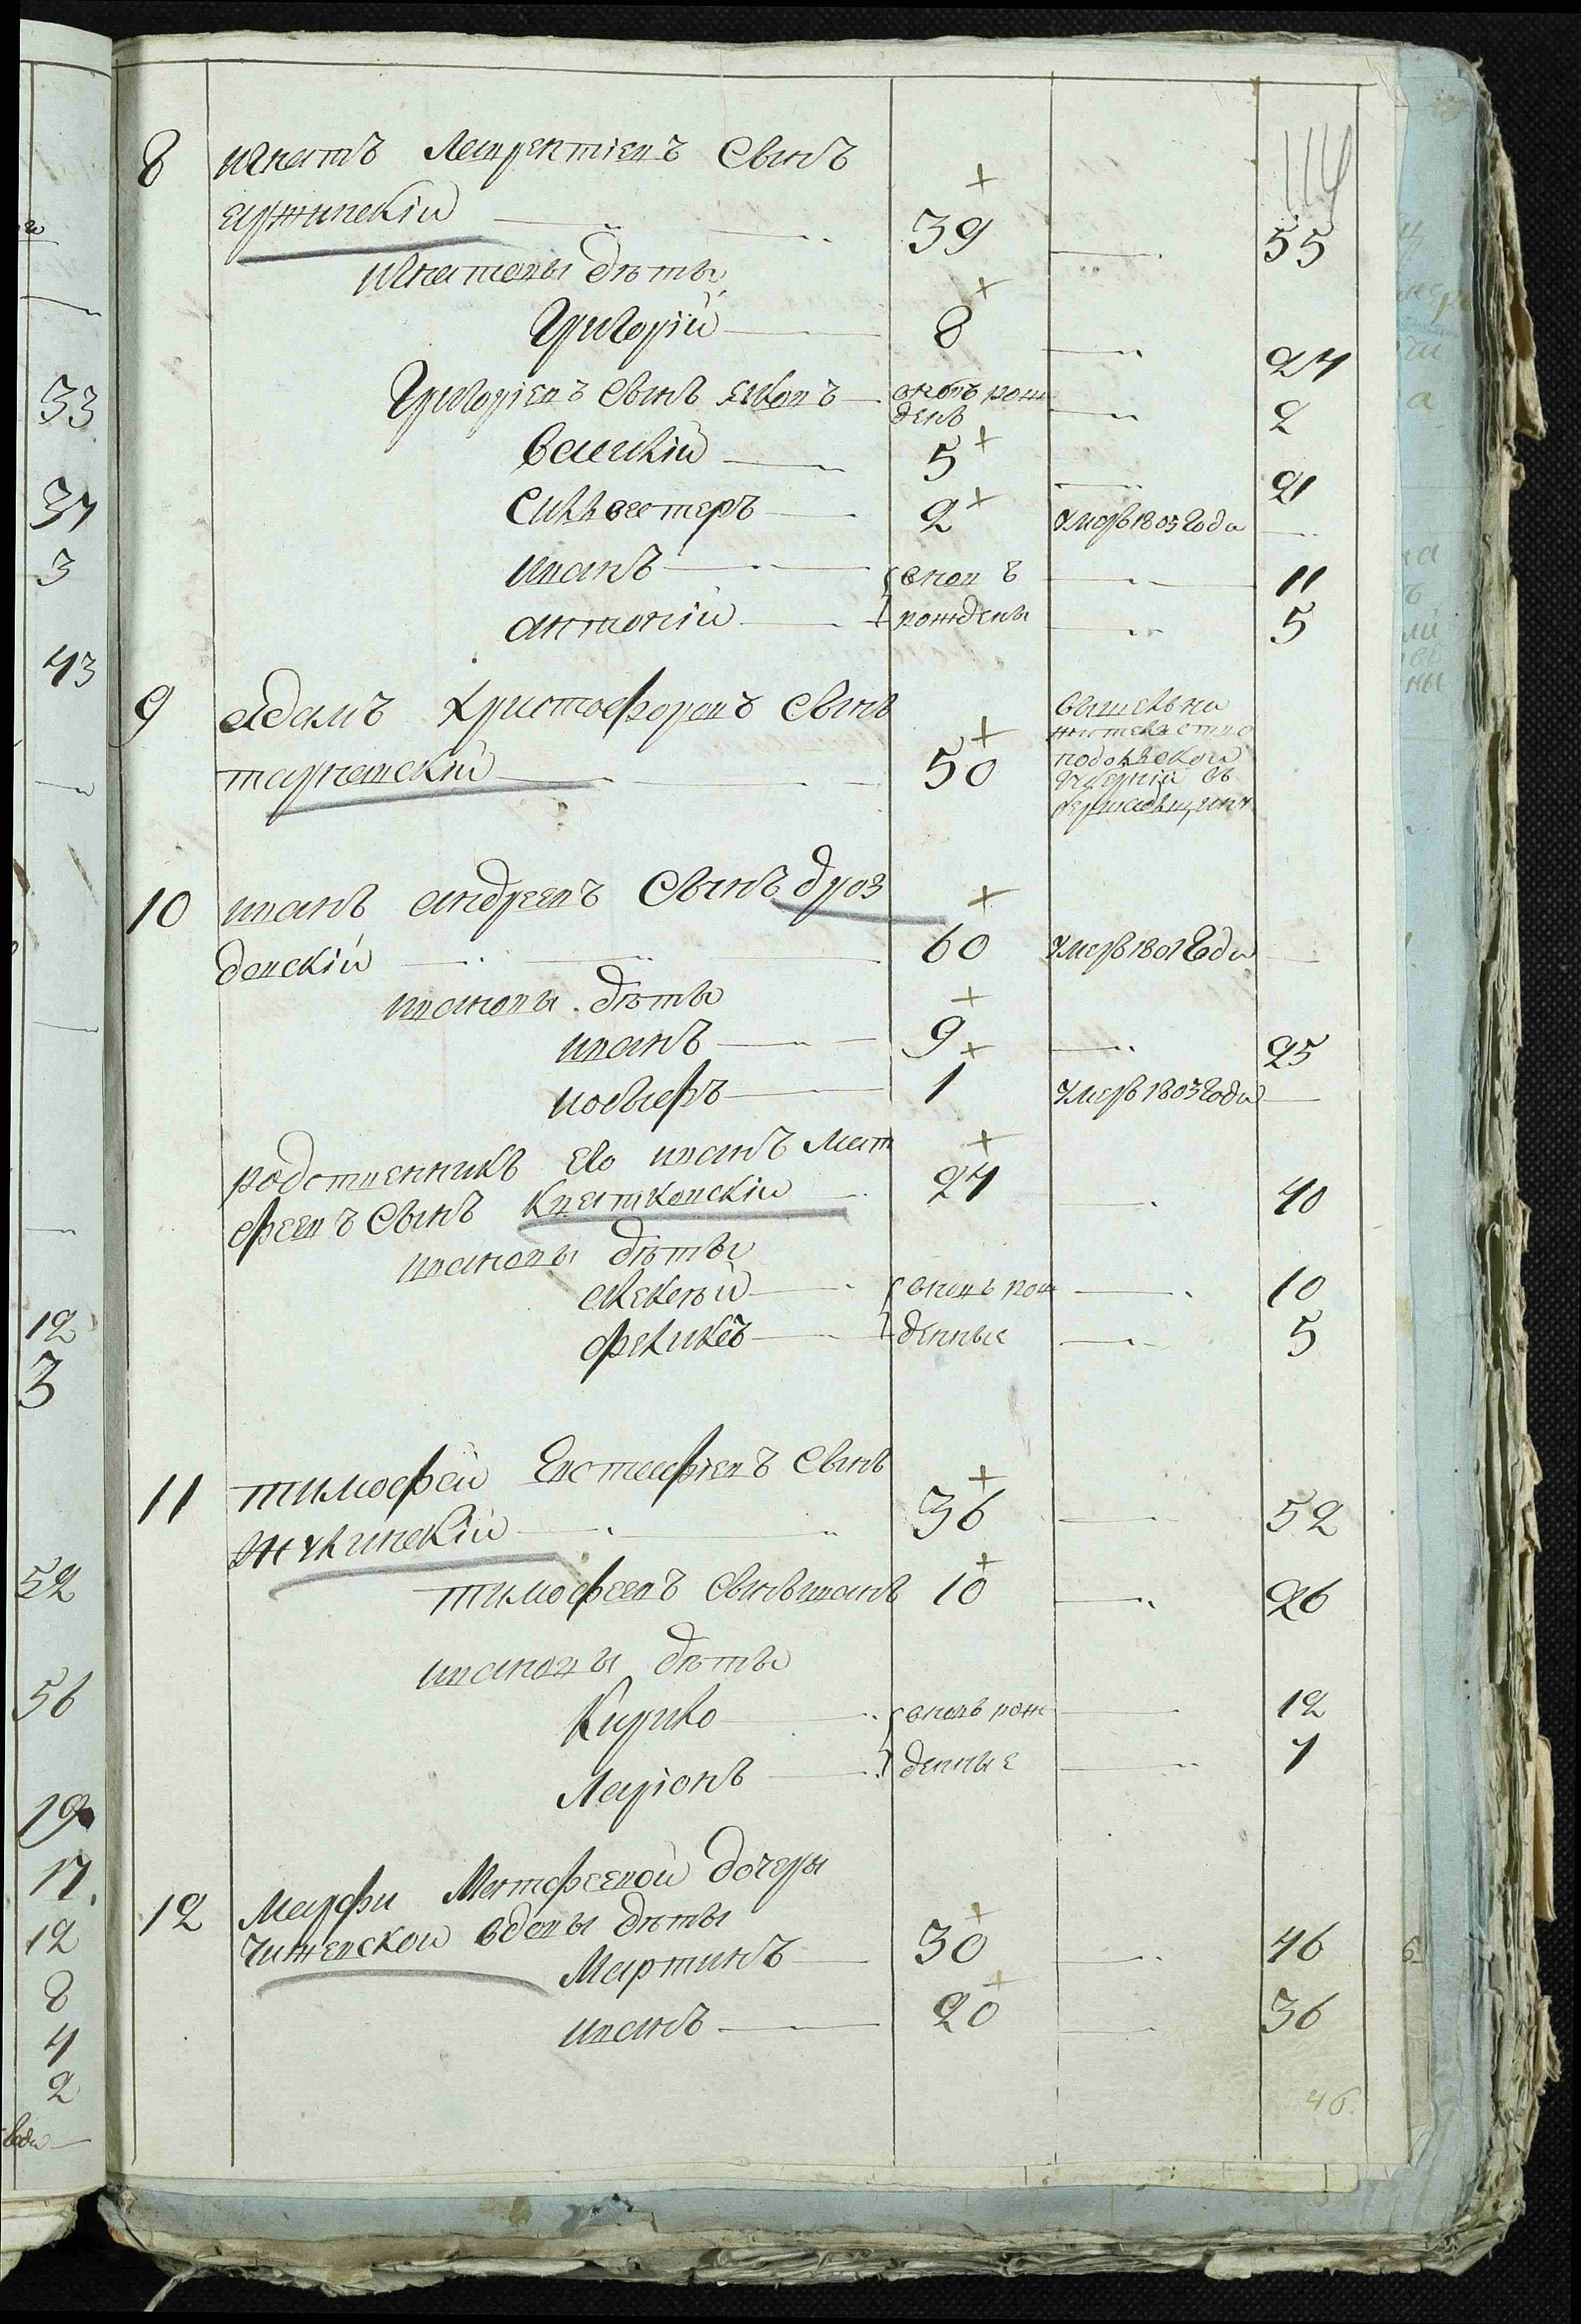 114
8 игнатъ Лаврентіевъ Сынъ
яржинскій 39 55
игнатовы дѣты
Григорій 8 24
Григоріевъ Сынъ яковъ вновъ рож
денъ 2
Василій 5 21
Силвестеръ 2 умеръ 1803 Года
иванъ вновъ 11
антоній рождены 5
9 адамъ Христофоровъ Сынъ вышелъ на
жителство
тарнавскій 50 подолской
губерніи въ
10 иванъ андреевъ Сынъ дроз
довскій 60 умеръ 1801 Года
ивановы дѣты
иванъ 9 25
иосыфъ 1 умеръ 1803 Года
родственникъ его иванъ Мат
феевъ Сынъ Квятковскій 24 40
ивановы дѣты
алексѣй вновъ рож 10
феликсъ денные 5
11 тимофей Евстафіевъ Сынъ
жулинскій 36 52
тимофеевъ Сынъ иванъ 10 26
ивановы дѣты
Кирило вновъ рож 12
Ларіонъ денные 4
12 Марфи Матфеевой дочеры
Чижевской вдовы дѣты
Мартинъ 30 46
иванъ 20 36
46.
33
34
3
43
12
3
52
56
19
17.
12
8
4
2